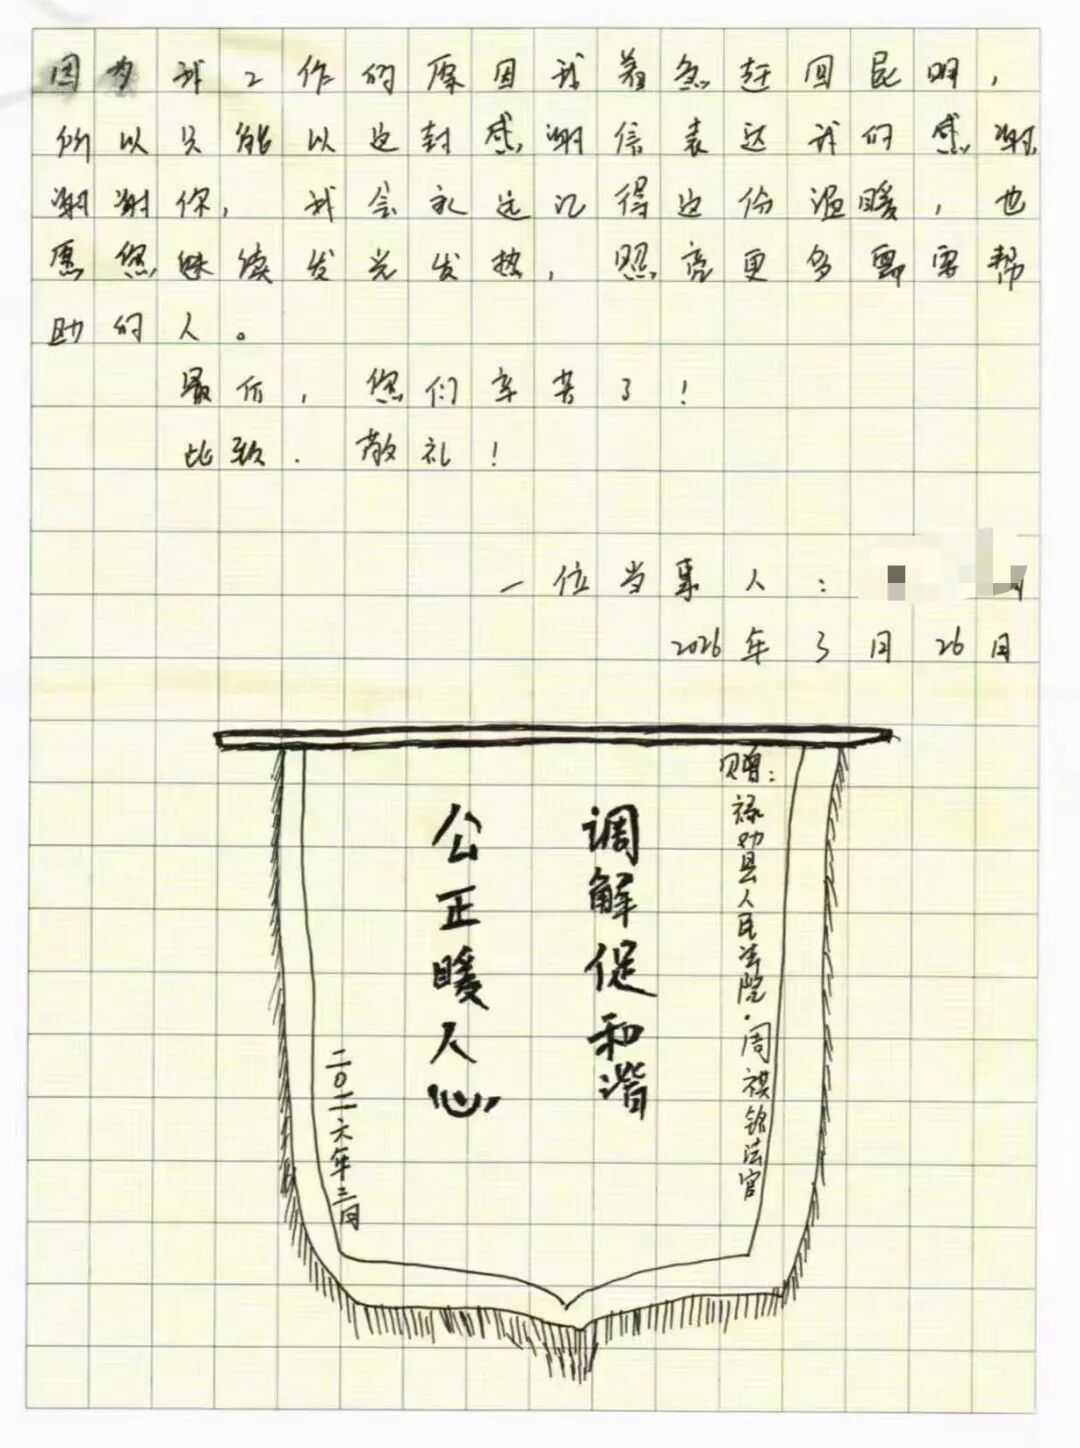 因为我工作的原因我着急赶回昆明，
所以只能以这封感谢信表达我们感谢
谢谢你，我会永远记得这份温暖，也
愿您继续发光发热，照亮更多需要帮
助的人。
最后，您们辛苦了！
此致．敬礼！
一位当事人：
2026年3月26日
赠：禄劝县人民法院·周祺铭法官
调解促和谐
公正暖人心
二〇二六年三月